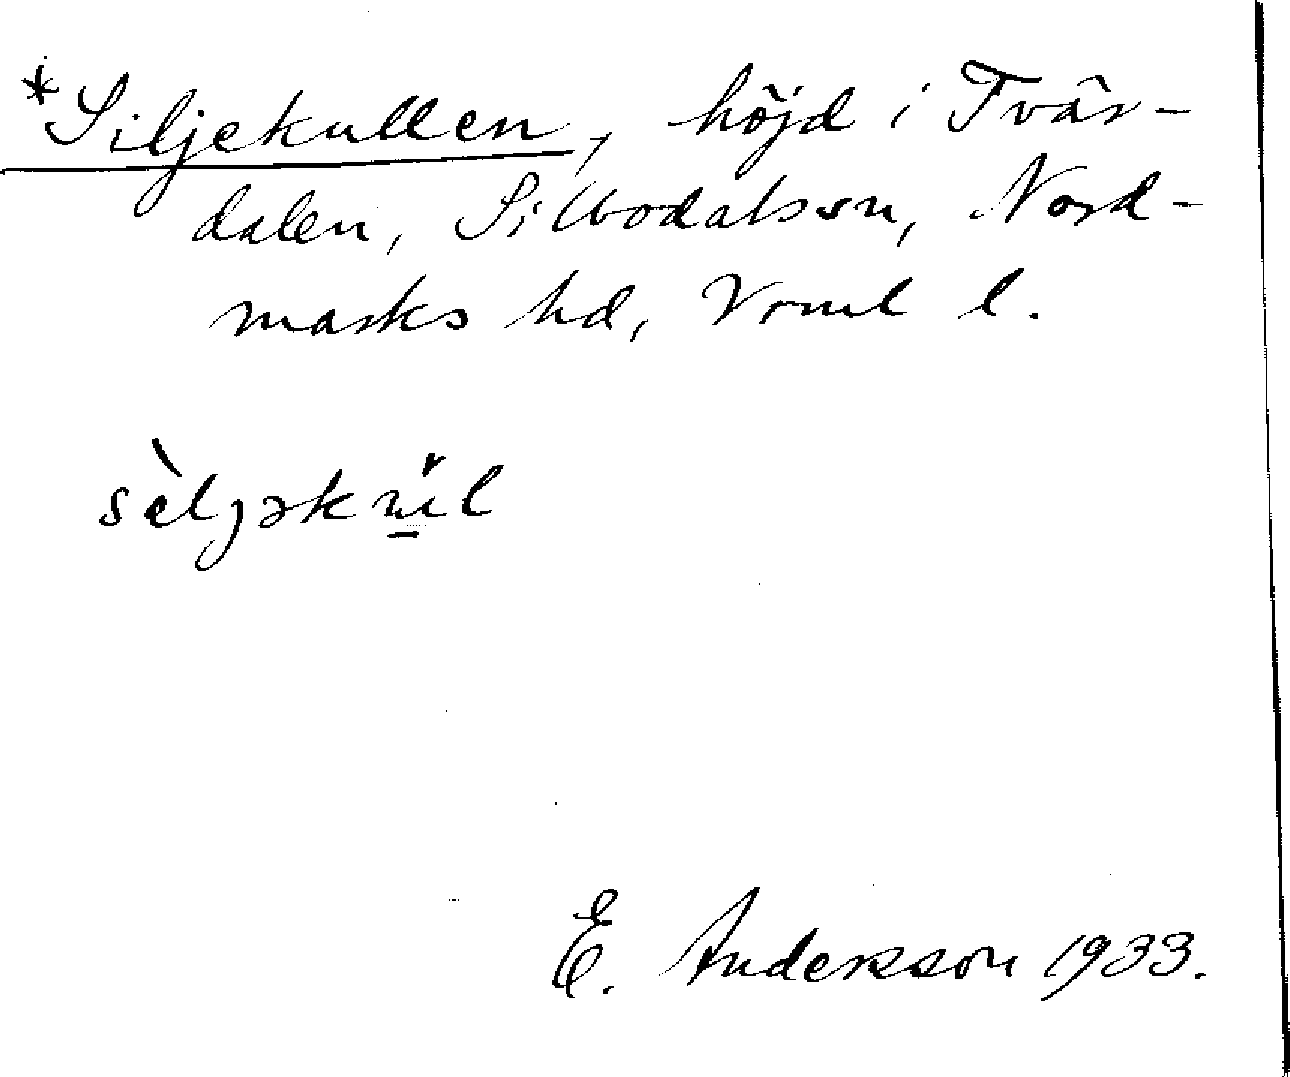 *Siljekullen, höjd i Tvär-
dalen, Silbodals sn, Nord-
marks hd, Vrml l.
sèljəku̠̇l
E. Andersson 1933.